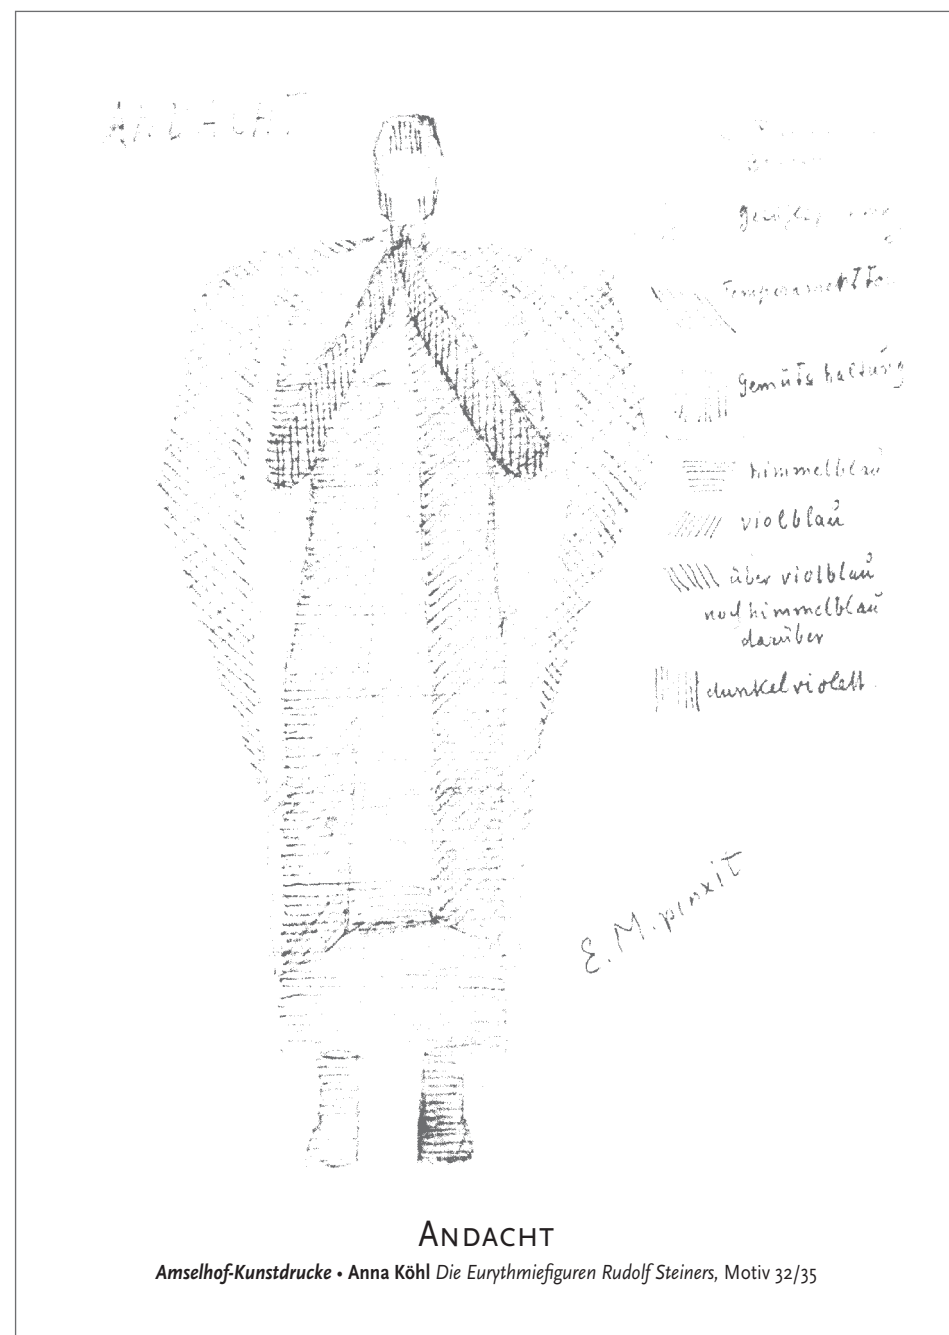 ANDACHT
Gemütshaltung
himmelblau
violblau
über violblau
noch himmelblau
darüber
dunkelviolett
E. M. pinxit
ANDACHT
Amselhof-Kunstdrucke • Anna Köhl Die Eurythmiefiguren Rudolf Steiners, Motiv 32/35